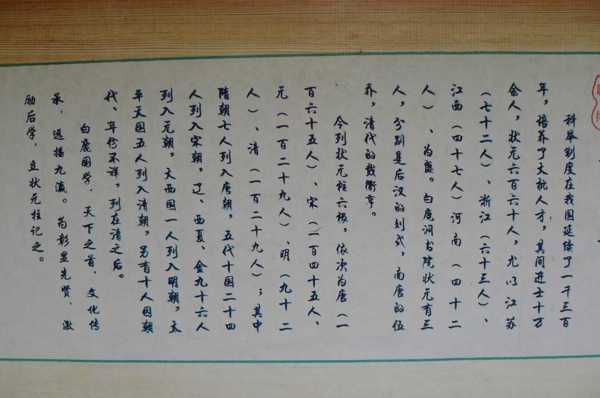 科举制度在我国延续了一千三百
年，培养了大批人才，其间进士十万
余人，状元六百六十人，尤以江苏
（七十二人）、浙江（六十三人）、
江西（四十七人）河南（四十二
人）、为盛。白鹿洞书院状元有三
人，分别是后汉的刘式，南唐的伍
乔，清代的戴衢亨。
今列状元柱六根，依次为唐（一
百六十五人）、宋（一百四十五人、
元（一百二十九人）、明（九十二
人）、清（一百二十九人）；其中
隋朝七人列入唐朝，五代十国二十四
人列入宋朝，辽、西夏、金九十六人
列入元朝，大西国一人列入明朝，太
平天国五人列入清朝，另有十人因朝
代、年份不详，列在清之后。
白鹿国学，天下之首，文化传
承，遐播九瀛。为彰显先贤，激
励后学，立状元柱记之。